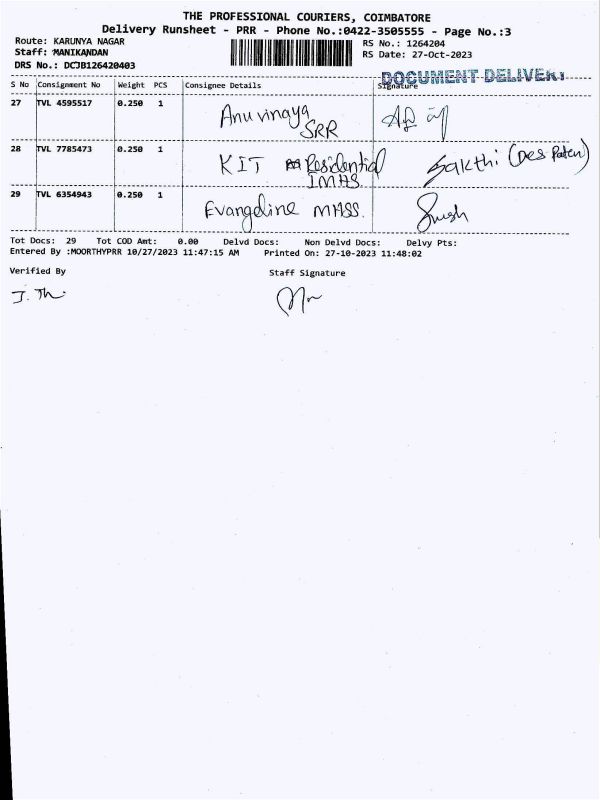 THE PROFESSIONAL COURIERS, COIMBATORE
Delivery Runsheet - PRR - Phone No.:0422-3505555 - Page No.:3
Route: KARUNYA NAGAR RS No.: 1264204
Staff: MANIKANDAN RS Date: 27-Oct-2023
DRS No.: DCJB126420403
DOCUMENT DELIVERY
S No Consignment No Weight PCS Consignee Details Signature
27 TVL 4595517 0.250 1 Anu vinaya
SRR
28 TVL 7785473 0.250 1 KIT Residential Sakthi
IMHS
29 TVL 6354943 0.250 1 Evangeline MHSS.
Tot Docs: 29 Tot COD Amt: 0.00 Delvd Docs: Non Delvd Docs: Delvy Pts:
Entered By :MOORTHYPRR 10/27/2023 11:47:15 AM Printed On: 27-10-2023 11:48:02
Verified By Staff Signature